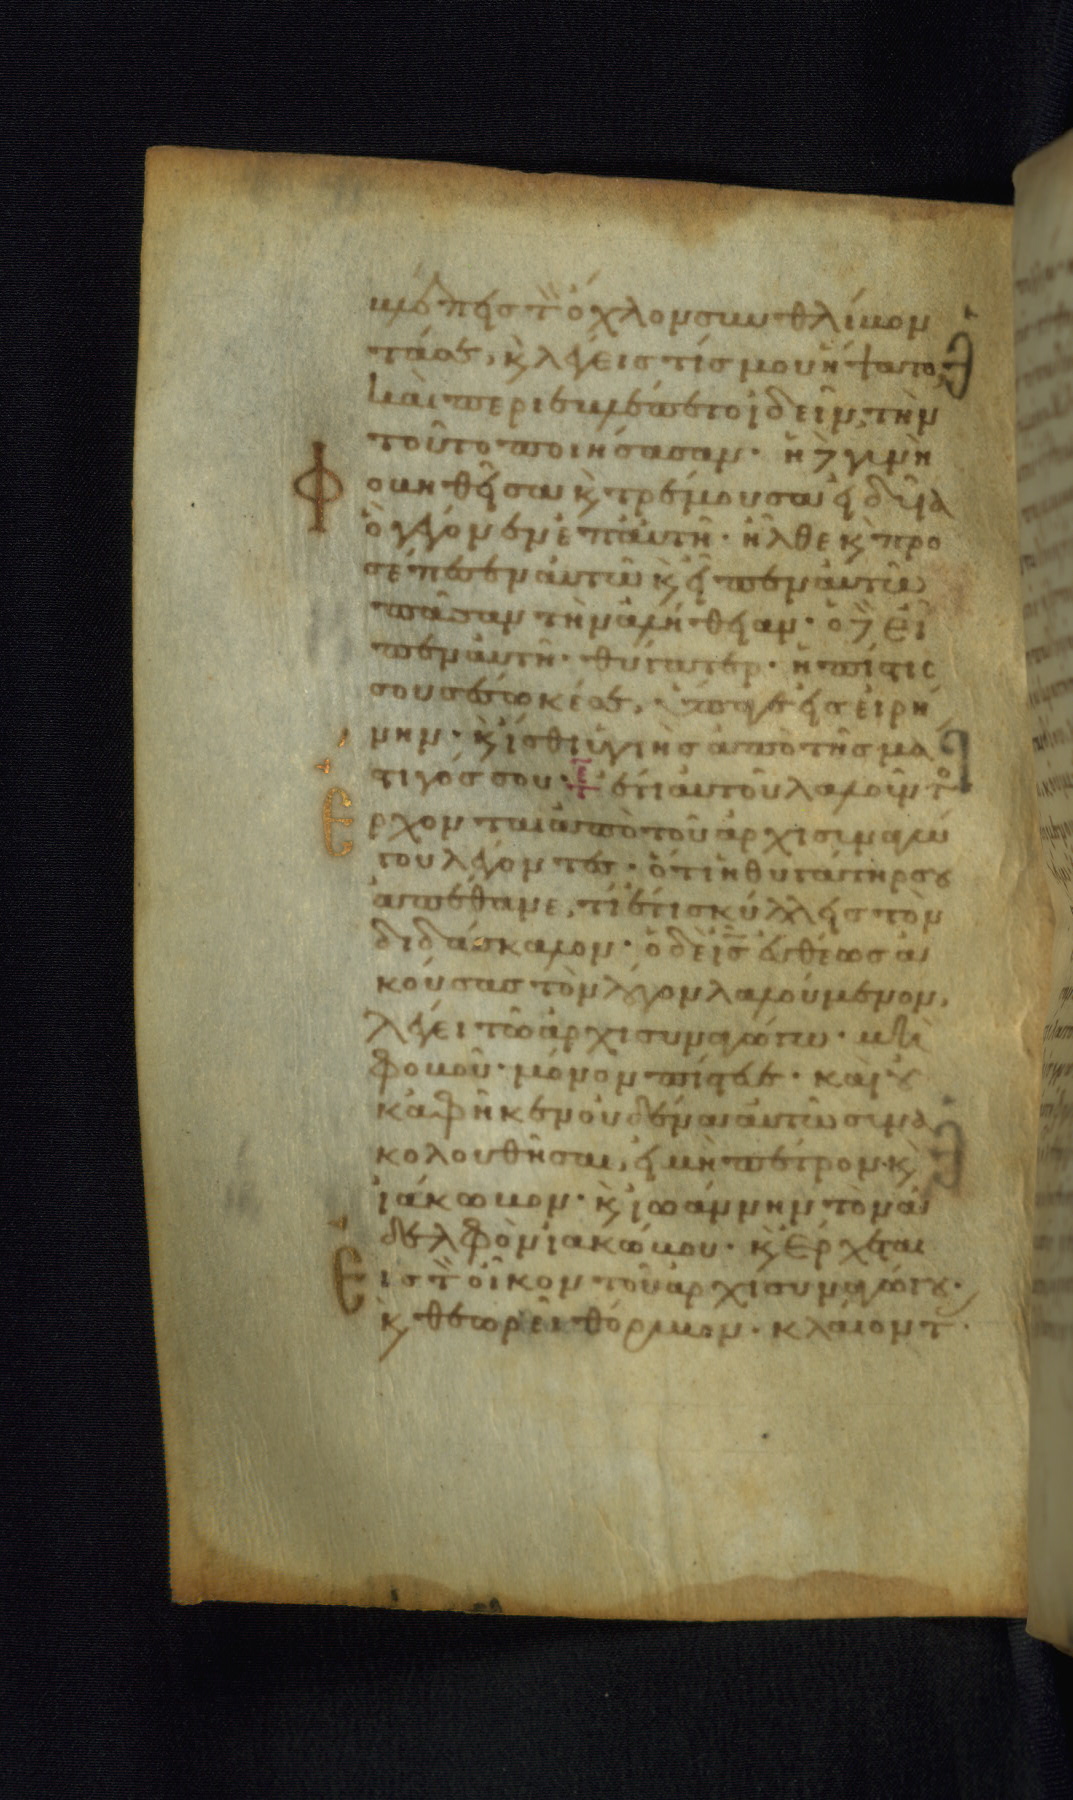 βλέπεις τ̀ ὄχλον συνθλίβον
τά σε, κ̀ λέγεις τίς μου ἥψατο,
καὶ περιεβλέπετο ἰδεῖν τὴν
τοῦτο ποιήσασαν· ἡ δ̀ γυνὴ
Φοβηθεῖσα κ̀ τρέμουσα εἰδυῖα
ὃ γέγονεν ἐπ' αὐτῆ· ἦλθε κ̀ προ
σέπεσεν αὐτῶ κ̀ εἶπεν αὐτῶ
πᾶσαν τὴν ἀλήθειαν· ὁ δ̀ εἶ
πεν αὐτῆ· θύγατερ· ἡ πίστις
σου σέσωκέ σε, ὕπαγε εἰς εἰρή
νην· κ̀ ἴσθι ὑγιὴς ἀπὸ τῆς μά
στιγός σου· ἔτι αὐτοῦ λαλοῦντο
Ἔρχονται ἀπὸ τοῦ ἀρχισυναγώ
γου λέγοντες· ὅτι ἡ θυγάτηρ σου
ἀπέθανε, τί ἔτι σκύλλεις τὸν
διδάσκαλον· ὁ δὲ ις̄ εὐθέως ἀ
κούσας τὸν λόγον λαλούμενον,
λέγει τῶ ἀρχισυναγώγω· μὴ
φοβοῦ· μόνον πίστευε· καὶ οὐ
κ ἀφῆκεν οὐδένα αὐτῶ συνα
κολουθῆσαι, εἰ μὴ πέτρον κ̀
ἰάκωβον· κ̀ ἰωάννην τὸν ἀ
δελφὸν ἰακώβου· κ̀ ἔρχεται
Εἰς τ̀ οἶκον τοῦ ἀρχισυναγώγου·
κ̀ θεωρεῖ θόρυβον· κλαίοντ